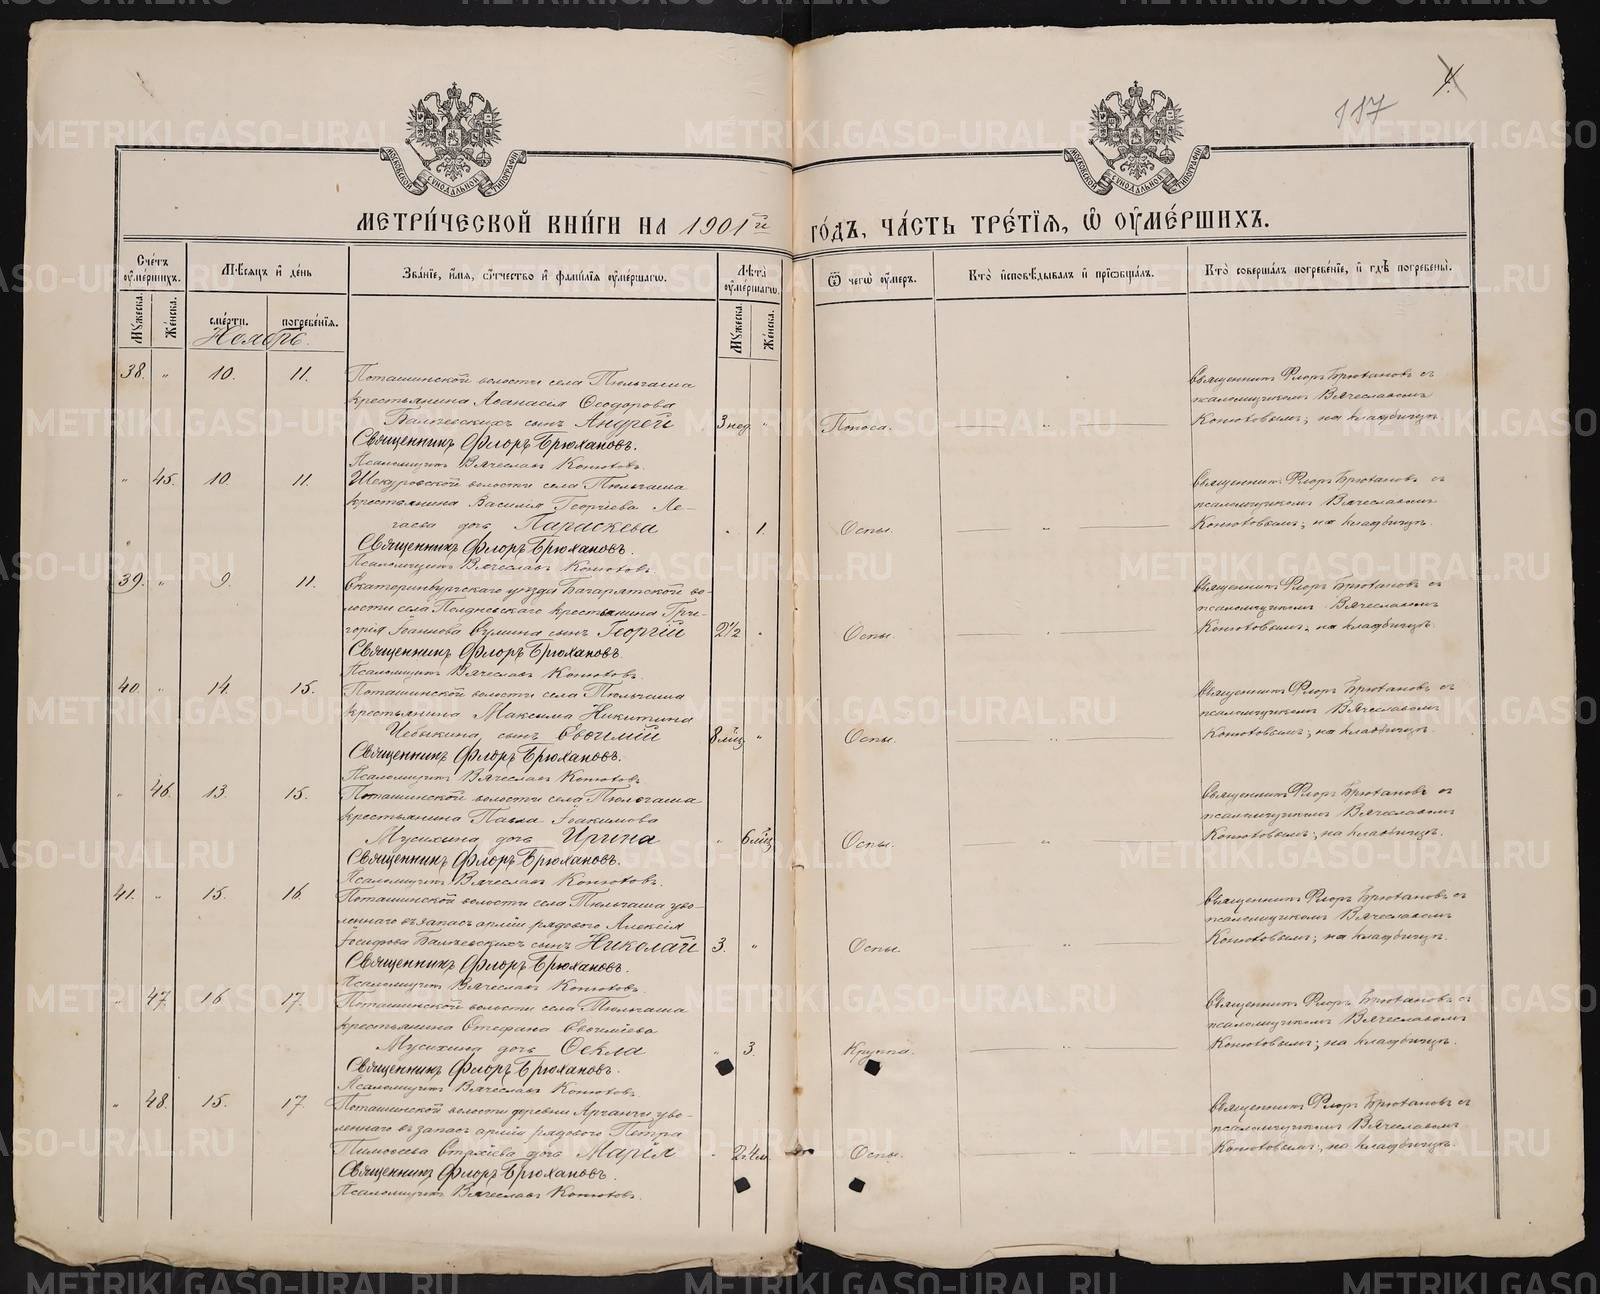 187
4.
МОСКОВСКОЙ СѴНОДАЛЬНОЙ ТИПОГРАФІИ
МОСКОВСКОЙ СѴНОДАЛЬНОЙ ТИПОГРАФІИ
МЕТРИ́ЧЕСКОЙ КНИ́ГИ НА 1901й ГО́ДЪ, ЧА́СТЬ ТРЕ́ТІѦ, Ѡ҆ ОУ҆МЕ́РШИХЪ.
Сче́тъ оу҆ме́ршихъ.
Мꙋ́жеска.
Же́нска.
Мѣ́сяцъ и҆ де́нь
сме́рти.
погребе́нїѧ.
Зва́нїе, и҆́мѧ, ѻ҆́тчество и҆ фами́лїѧ оу҆ме́ршагѡ.
Лѣ́та оу҆ме́ршагѡ.
Мꙋ́жеска.
Же́нска.
Ѿ чегѡ̀ оу҆́меръ.
Кто̀ и҆сповѣ́дывалъ и҆ прїѡбща́лъ.
Кто̀ соверша́лъ погребе́нїе, и҆ гдѣ̀ погребены̀.
Ноябрь.
38. " 10. 11. Поташинской волости села Тюльгаша
крестьянина Аѳанасія Ѳеодорова
сынъ Андрей 3 нед. " Поноса.
Священникъ Флоръ Брюхановъ.
Псаломщикъ Вячеславъ Конюховъ.
Священникъ Флоръ Брюхановъ съ
псаломщикомъ Вячеславомъ
Конюховымъ; на кладбищѣ.
" 45. 10. 11. Шокуровской волости села Тюльгаша
крестьянина Василія Георгіева
дочь Параскева " 1. Оспы.
Священникъ Флоръ Брюхановъ.
Псаломщикъ Вячеславъ Конюховъ.
Священникъ Флоръ Брюхановъ съ
псаломщикомъ Вячеславомъ
Конюховымъ; на кладбищѣ.
39. " 9. 11. Екатеринбургскаго уѣзда Багарятской во-
лости села Полдневскаго крестьянина Гри-
горія Іоаннова сынъ Георгій 2 1/2 " Оспы.
Священникъ Флоръ Брюхановъ.
Псаломщикъ Вячеславъ Конюховъ.
Священникъ Флоръ Брюхановъ съ
псаломщикомъ Вячеславомъ
Конюховымъ; на кладбищѣ.
40. " 14. 15. Поташинской волости села Тюльгаша
крестьянина Максима Никитина
Чебыкина сынъ Евѳимій 8 мѣц. " Оспы.
Священникъ Флоръ Брюхановъ.
Псаломщикъ Вячеславъ Конюховъ.
Священникъ Флоръ Брюхановъ съ
псаломщикомъ Вячеславомъ
Конюховымъ; на кладбищѣ.
" 46. 13. 15. Поташинской волости села Тюльгаша
крестьянина Павла Іоакимова
Мусихина дочь Ирина " 6 мѣц. Оспы.
Священникъ Флоръ Брюхановъ.
Псаломщикъ Вячеславъ Конюховъ.
Священникъ Флоръ Брюхановъ съ
псаломщикомъ Вячеславомъ
Конюховымъ; на кладбищѣ.
41. " 15. 16. Поташинской волости села Тюльгаша уво-
леннаго въ запасъ арміи рядового Алексія
Іосифова сынъ Николай 3. " Оспы.
Священникъ Флоръ Брюхановъ.
Псаломщикъ Вячеславъ Конюховъ.
Священникъ Флоръ Брюхановъ съ
псаломщикомъ Вячеславомъ
Конюховымъ; на кладбищѣ.
" 47. 16. 17. Поташинской волости села Тюльгаша
крестьянина Стефана Евѳиміева
Мусихина дочь Ѳекла " 3. Круппа.
Священникъ Флоръ Брюхановъ.
Псаломщикъ Вячеславъ Конюховъ.
Священникъ Флоръ Брюхановъ съ
псаломщикомъ Вячеславомъ
Конюховымъ; на кладбищѣ.
" 48. 15. 17. Поташинской волости деревни уво-
леннаго въ запасъ арміи рядового Петра
Тимоѳеева дочь Марія " Оспы.
Священникъ Флоръ Брюхановъ.
Псаломщикъ Вячеславъ Конюховъ.
Священникъ Флоръ Брюхановъ съ
псаломщикомъ Вячеславомъ
Конюховымъ; на кладбищѣ.
METRIKI.GASO-URAL.RU